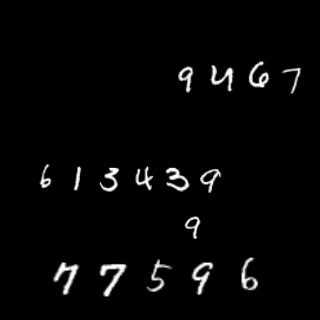 9467
613439
9
77596